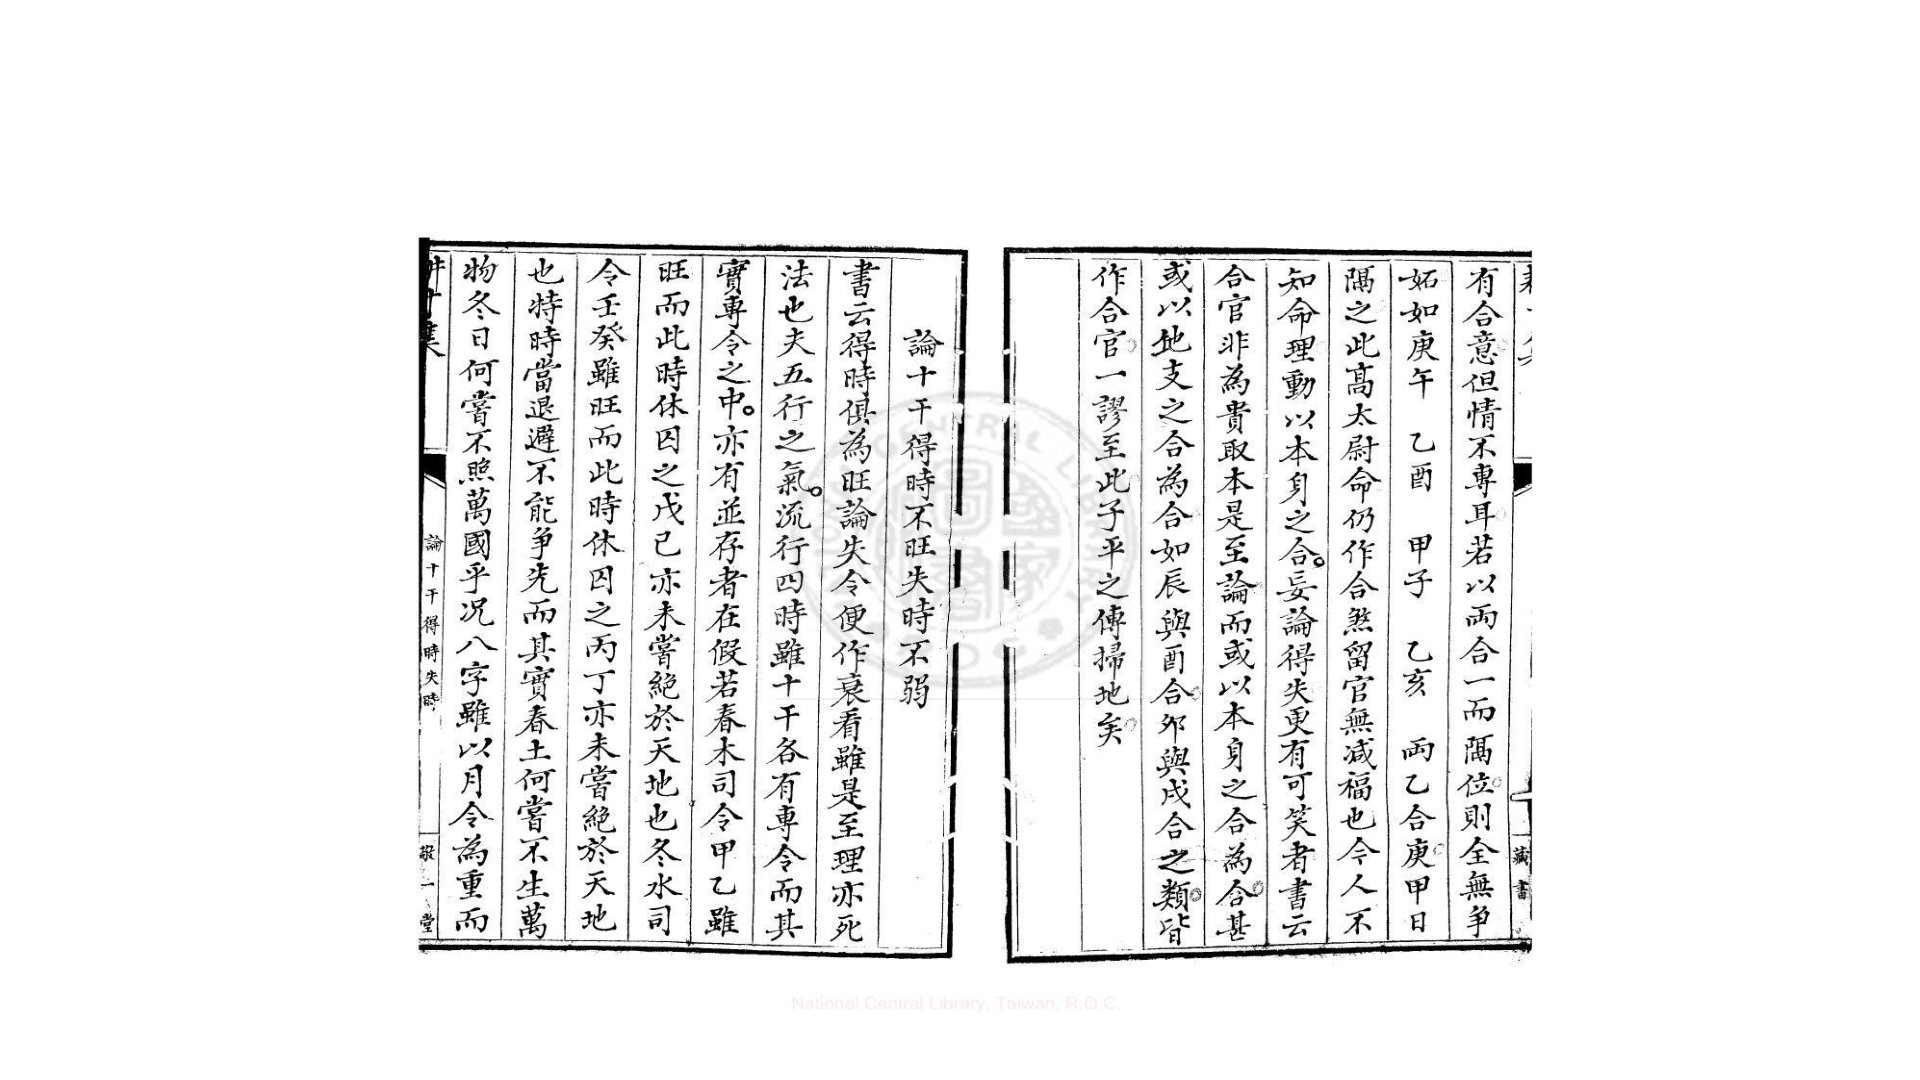 有合意但情不專耳若以兩合一而隔位則全無爭
妬如庚午　乙酉　甲子　乙亥　兩乙合庚甲日
隔之此髙太尉命仍作合煞留官無减福也今人不
知命理動以本身之合妄論得失更有可笑者書云
合官非為貴取本是至論而或以本身之合為合甚
或以地支之合為合如辰與酉合夘與戌合之類皆
作合官一謬至此子平之傳掃地矣
論十干得時不旺失時不弱
書云得時俱為旺論失令便作衰看雖是至理亦死
法也夫五行之氣流行四時雖十干各有專令而其
實專令之中亦有並存者在假若春木司令甲乙雖
旺而此時休囚之戊已亦未嘗絕於天地也冬水司
令壬癸雖旺而此時休囚之丙丁亦未嘗絕於天地
也特時當退避不能爭先而其實春土何嘗不生萬
物冬日何嘗不照萬國乎况八字雖以月令為重而
論十干得時失時
敬一堂
藏書
National Central Library, Taiwan, R.O.C.